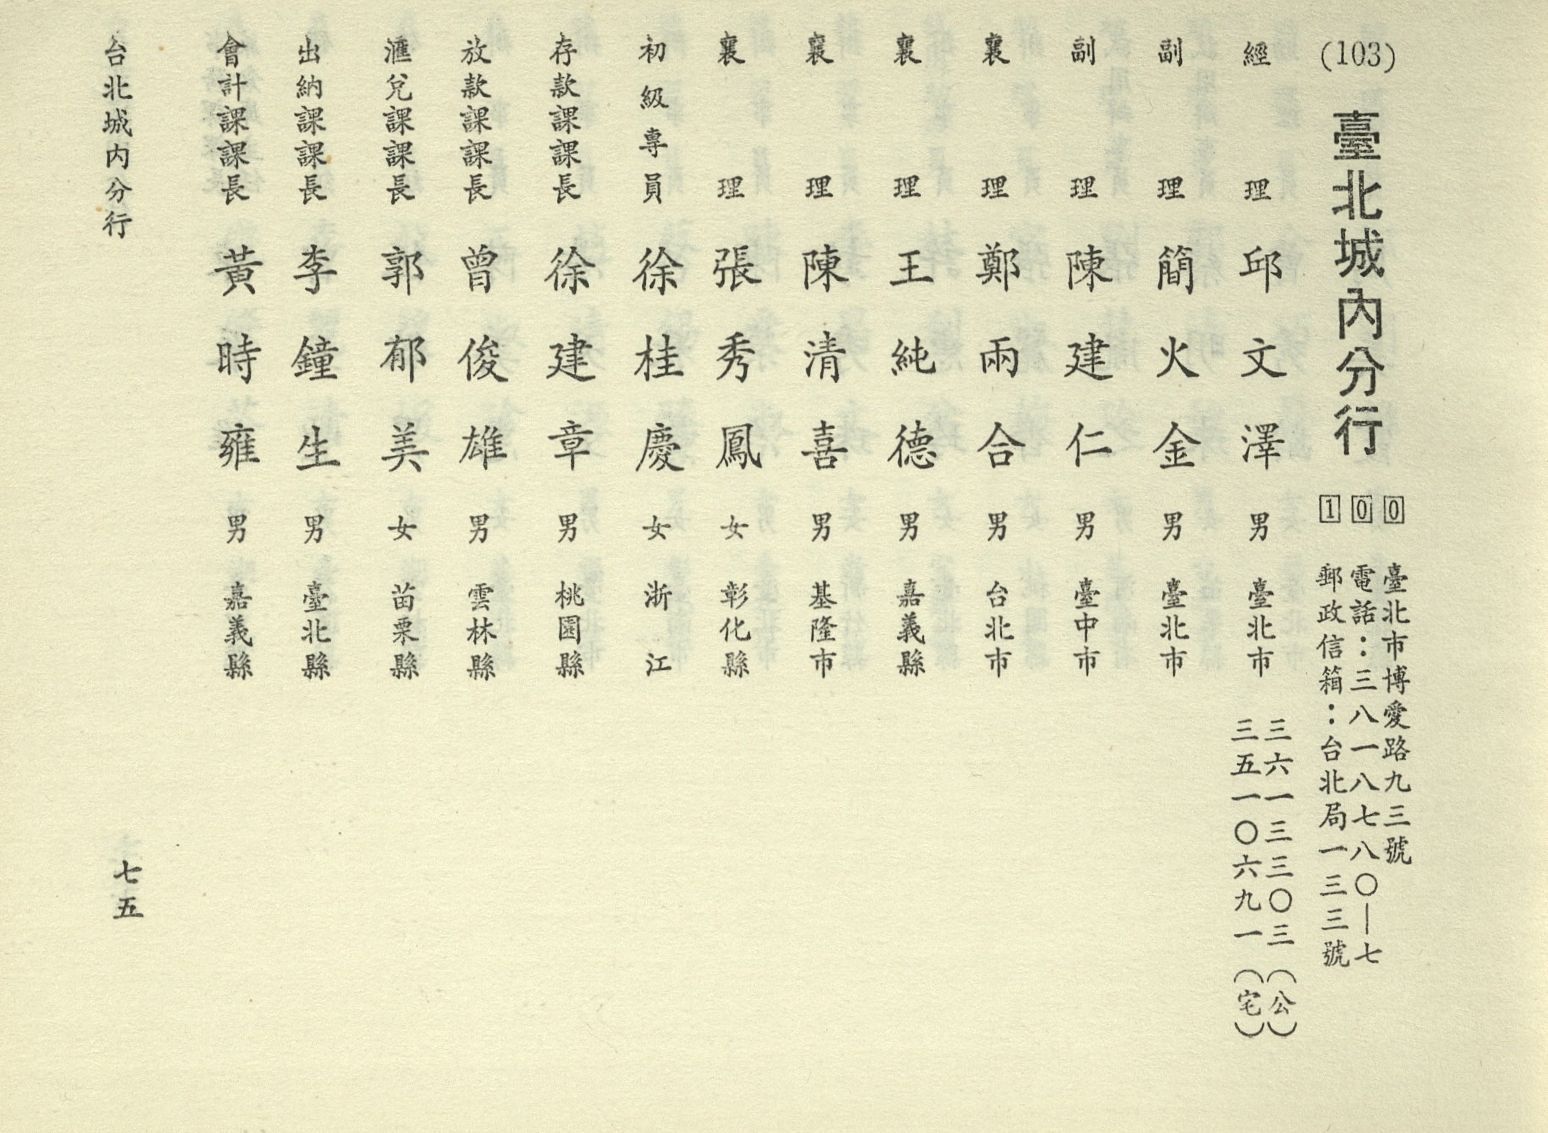 (103) 臺北城內分行 100
臺北市博愛路九三號
電話：三八一八七八〇—七
郵政信箱：台北局一三三號
經理 邱文澤 男 臺北市 三六一三三〇三（公）
三五一〇六九一（宅）
副理 簡火金 男 臺北市
副理 陳建仁 男 臺中市
襄理 鄭兩合 男 台北市
襄理 王純德 男 嘉義縣
襄理 陳清喜 男 基隆市
襄理 張秀鳳 女 彰化縣
初級專員 徐桂慶 女 浙江
存款課課長 徐建章 男 桃園縣
放款課課長 曾俊雄 男 雲林縣
滙兌課課長 郭郁美 女 苗栗縣
出納課課長 李鐘生 男 臺北縣
會計課課長 黃時雍 男 嘉義縣
台北城內分行
七五